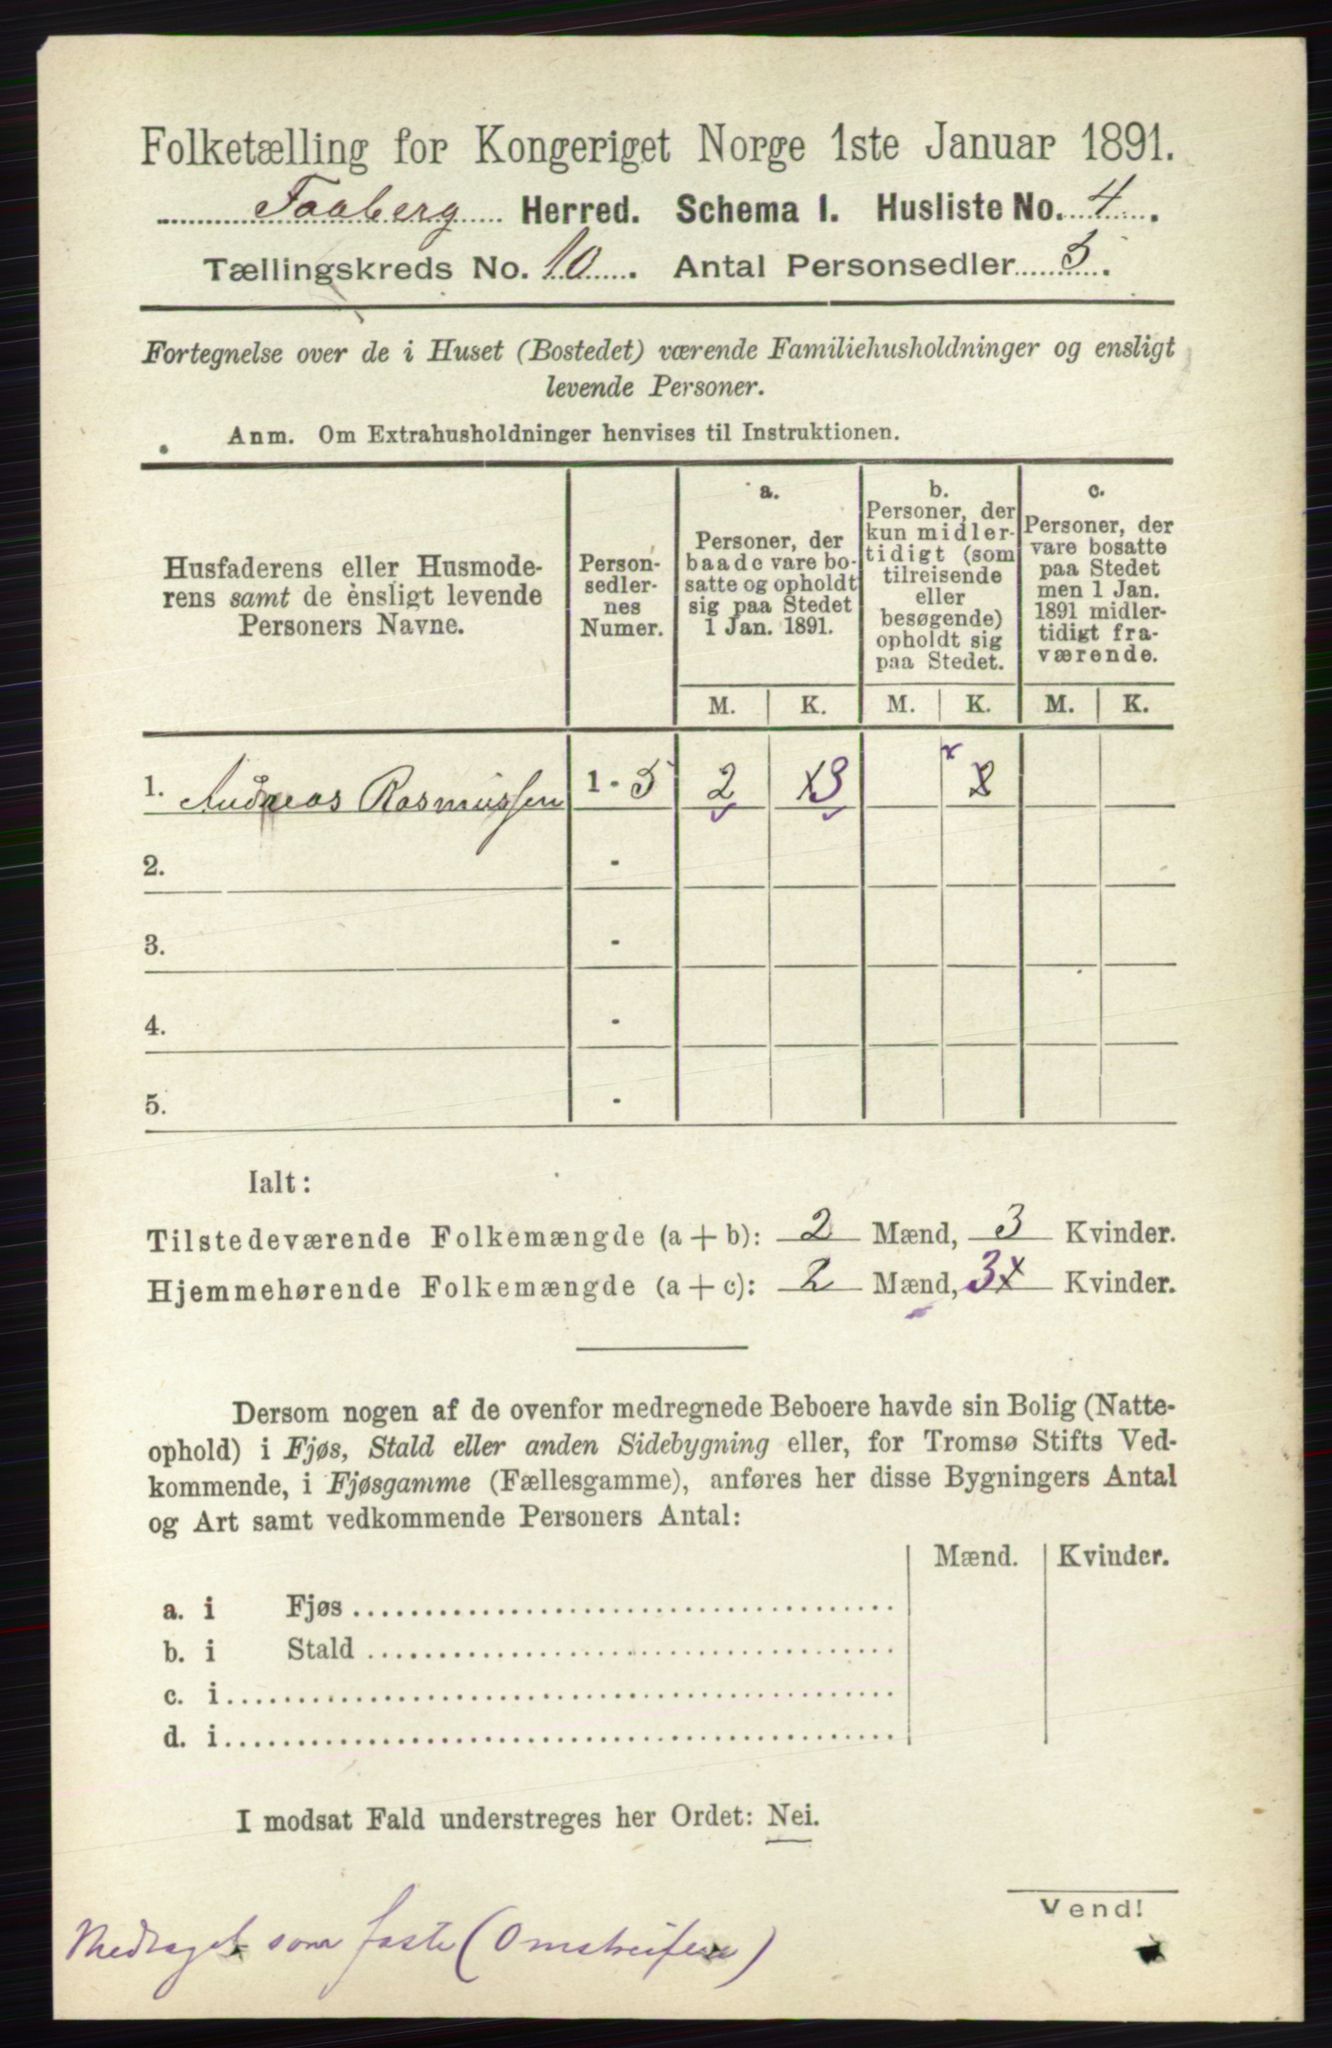 Folketælling for Kongeriget Norge 1ste Januar 1891.
Faaberg Herred. Schema I. Husliste No. 4.
Tællingskreds No. 10. Antal Personsedler 5.
Fortegnelse over de i Huset (Bostedet) værende Familiehusholdninger og ensligt
levende Personer.
Anm. Om Extrahusholdninger henvises til Instruktionen.
Husfaderens eller Husmode-
rens samt de ensligt levende
Personers Navne.
Person-
sedler-
nes
Numer.
a.
Personer, der
baade vare bo-
satte og opholdt
sig paa Stedet
1 Jan. 1891.
b.
Personer, der
kun midler-
tidigt (som
tilreisende
eller
besøgende)
opholdt sig
paa Stedet.
c.
Personer, der
vare bosatte
paa Stedet
men 1 Jan.
1891 midler-
tidigt fra-
værende.
M. K. M. K. M. K.
1. Andreas Rasmussen 1 - 5 2 3
2. -
3. -
4. -
5. -
Ialt:
Tilstedeværende Folkemængde (a + b): 2 Mænd, 3 Kvinder.
Hjemmehørende Folkemængde (a + c): 2 Mænd, 3 Kvinder.
Dersom nogen af de ovenfor medregnede Beboere havde sin Bolig (Natte-
ophold) i Fjøs, Stald eller anden Sidebygning eller, for Tromsø Stifts Ved-
kommende, i Fjøsgamme (Fællesgamme), anføres her disse Bygningers Antal
og Art samt vedkommende Personers Antal:
Mænd. Kvinder.
a. i Fjøs
b. i Stald
c. i
d. i
I modsat Fald understreges her Ordet: Nei.
Vend!
Medtaget som faste (Omstreifere)